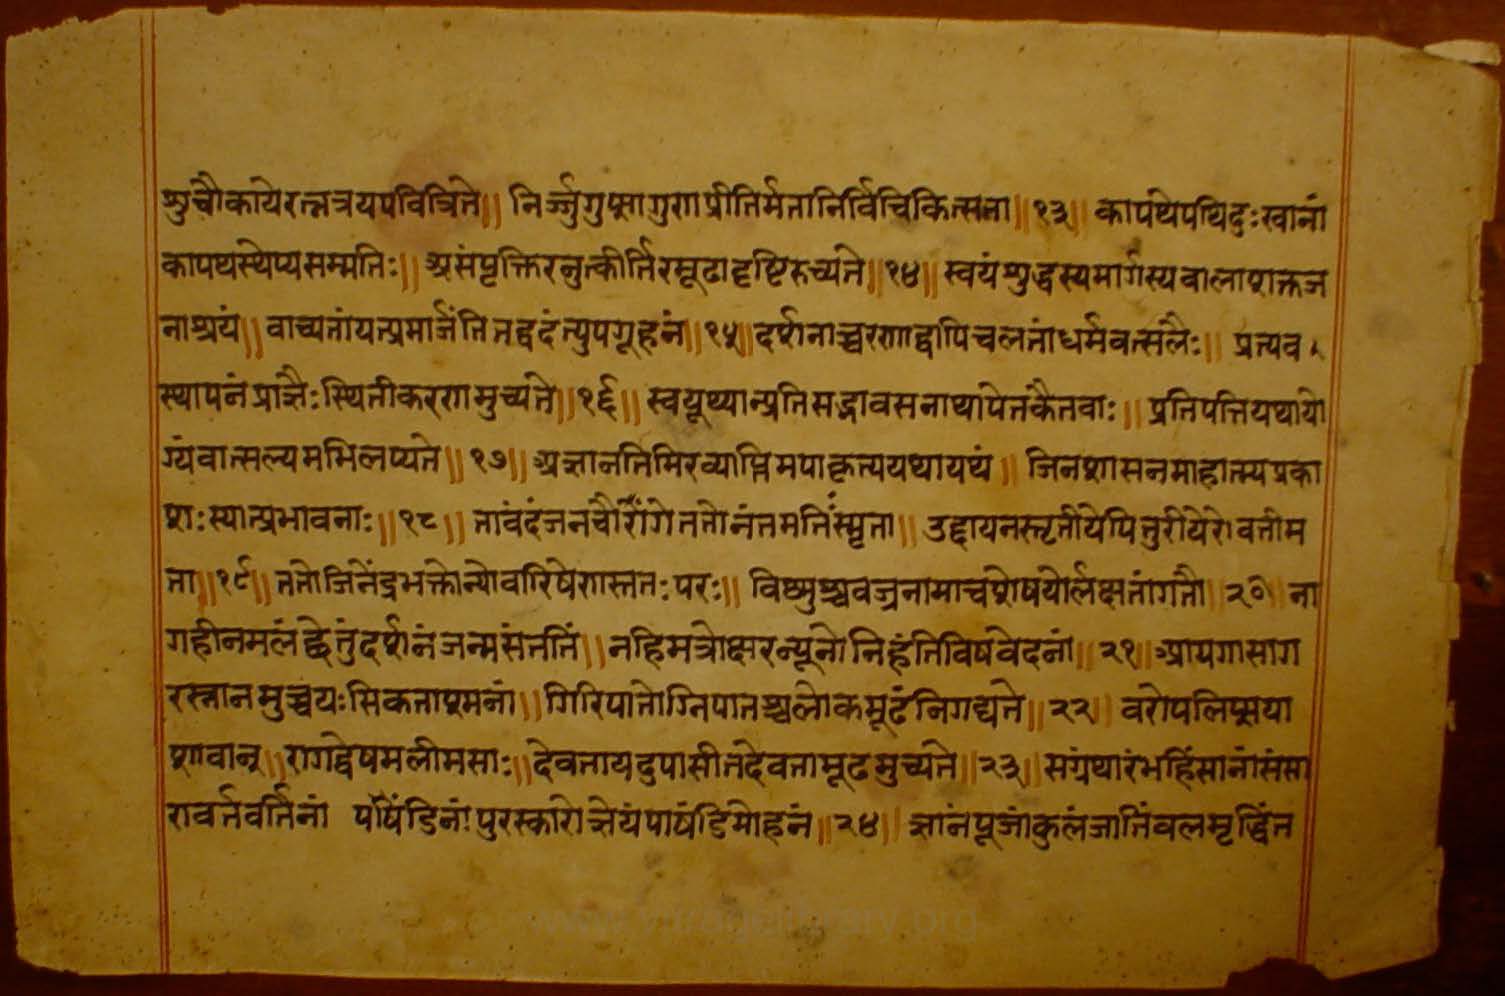 शुचौकायेरत्नत्रयपवित्रिते॥ निर्ज्जुगुप्सागुणप्रीतिर्मतानिर्विचिकित्सता॥१३॥ कापथेपथिदुःखानां
कापथस्थेप्यसम्मतिः॥ असंपृक्तिरनुत्कीर्तिरमूढादृष्टिरुच्यते॥१४॥ स्वयंशुद्धस्यमार्गस्यवालाशक्तज
नाश्रयं॥ वाच्यतांयत्प्रमार्जंतितद्वदंत्युपगूहनं॥१५॥दर्शनाच्चरणाद्वापिचलतांधर्मवत्सलैः॥ प्रत्यव
स्थापनंप्राज्ञैःस्थितीकरणमुच्यते॥१६॥ स्वयूथ्यान्प्रतिसद्भावसनाथापेतकैतवाः॥ प्रतिपत्तियथायो
ग्यंवात्सल्यमभिलप्यते॥१७॥ अज्ञानतिमिरव्याप्तिमपाकृत्ययथायथं॥ जिनशासनमाहात्म्यप्रका
शःस्यात्प्रभावनाः॥१८॥ तावदंजनचौरोंगेततोनंतमतिंस्मृता॥ उद्दायनस्तृतीयेपितुरीयेरेवतीम
ता॥१९॥ततोजिनेंद्रभक्तोन्योवारिषेणस्ततःपरः॥ विष्णुश्चवज्रनामाचशेषयोर्लक्षतांगतौ॥२०॥ना
गहीनमलंछेतुंदर्शनंजन्मसंततिं॥ नहिमत्रोक्षरन्यूनोनिहंतिविषवेदनां॥२१॥आपगासाग
रस्नानमुच्चयःसिकताश्मनां॥ गिरिपातोग्निपातश्चलोकमूढंनिगद्यते॥२२॥ वरोपलिप्सया
शावान्॥रागद्वेषमलीमसाः॥देवतायदुपासीतदेवतामूढमुच्यते॥२३॥ सग्रंथारंभहिंसानांसंसा
रावर्त्तवर्त्तिनां पाषंडिनांपुरस्कारोज्ञेयंपाषंडिमोहनं॥२४॥ ज्ञानंपूजांकुलंजातिंवलमृद्धिंत
www.vitragelibrary.org